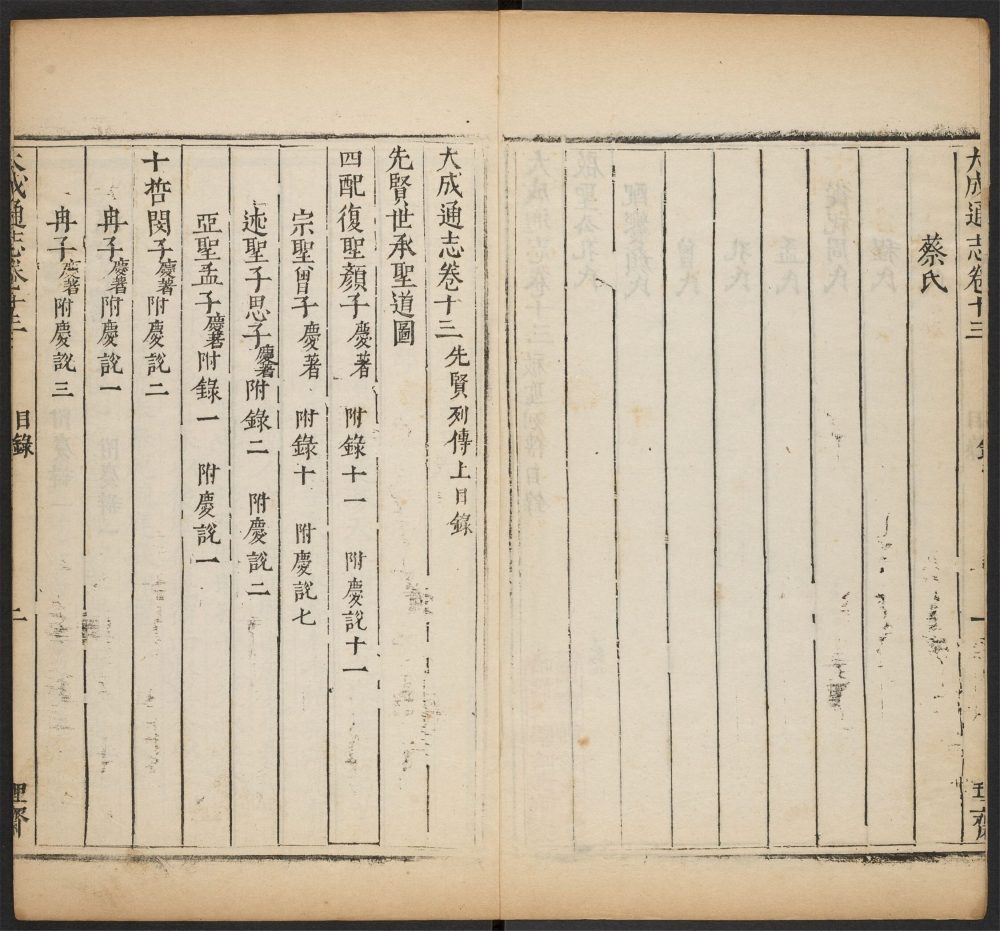 大成通志卷十三
目錄
一
理齋
蔡氏
大成通志卷十三 先賢列傳上目錄
先賢世承聖道圖
四配復聖顏子慶著 附錄十一 附慶說十一
宗聖曾子慶著 附錄十 附慶說七
述聖子思子慶著附錄二 附慶說二
亞聖孟子慶著附錄一 附慶說一
十哲閔子慶著附慶說二
冉子慶著附慶說一
冉子慶著附慶說三
大成通志卷十三
目錄
二
理齋